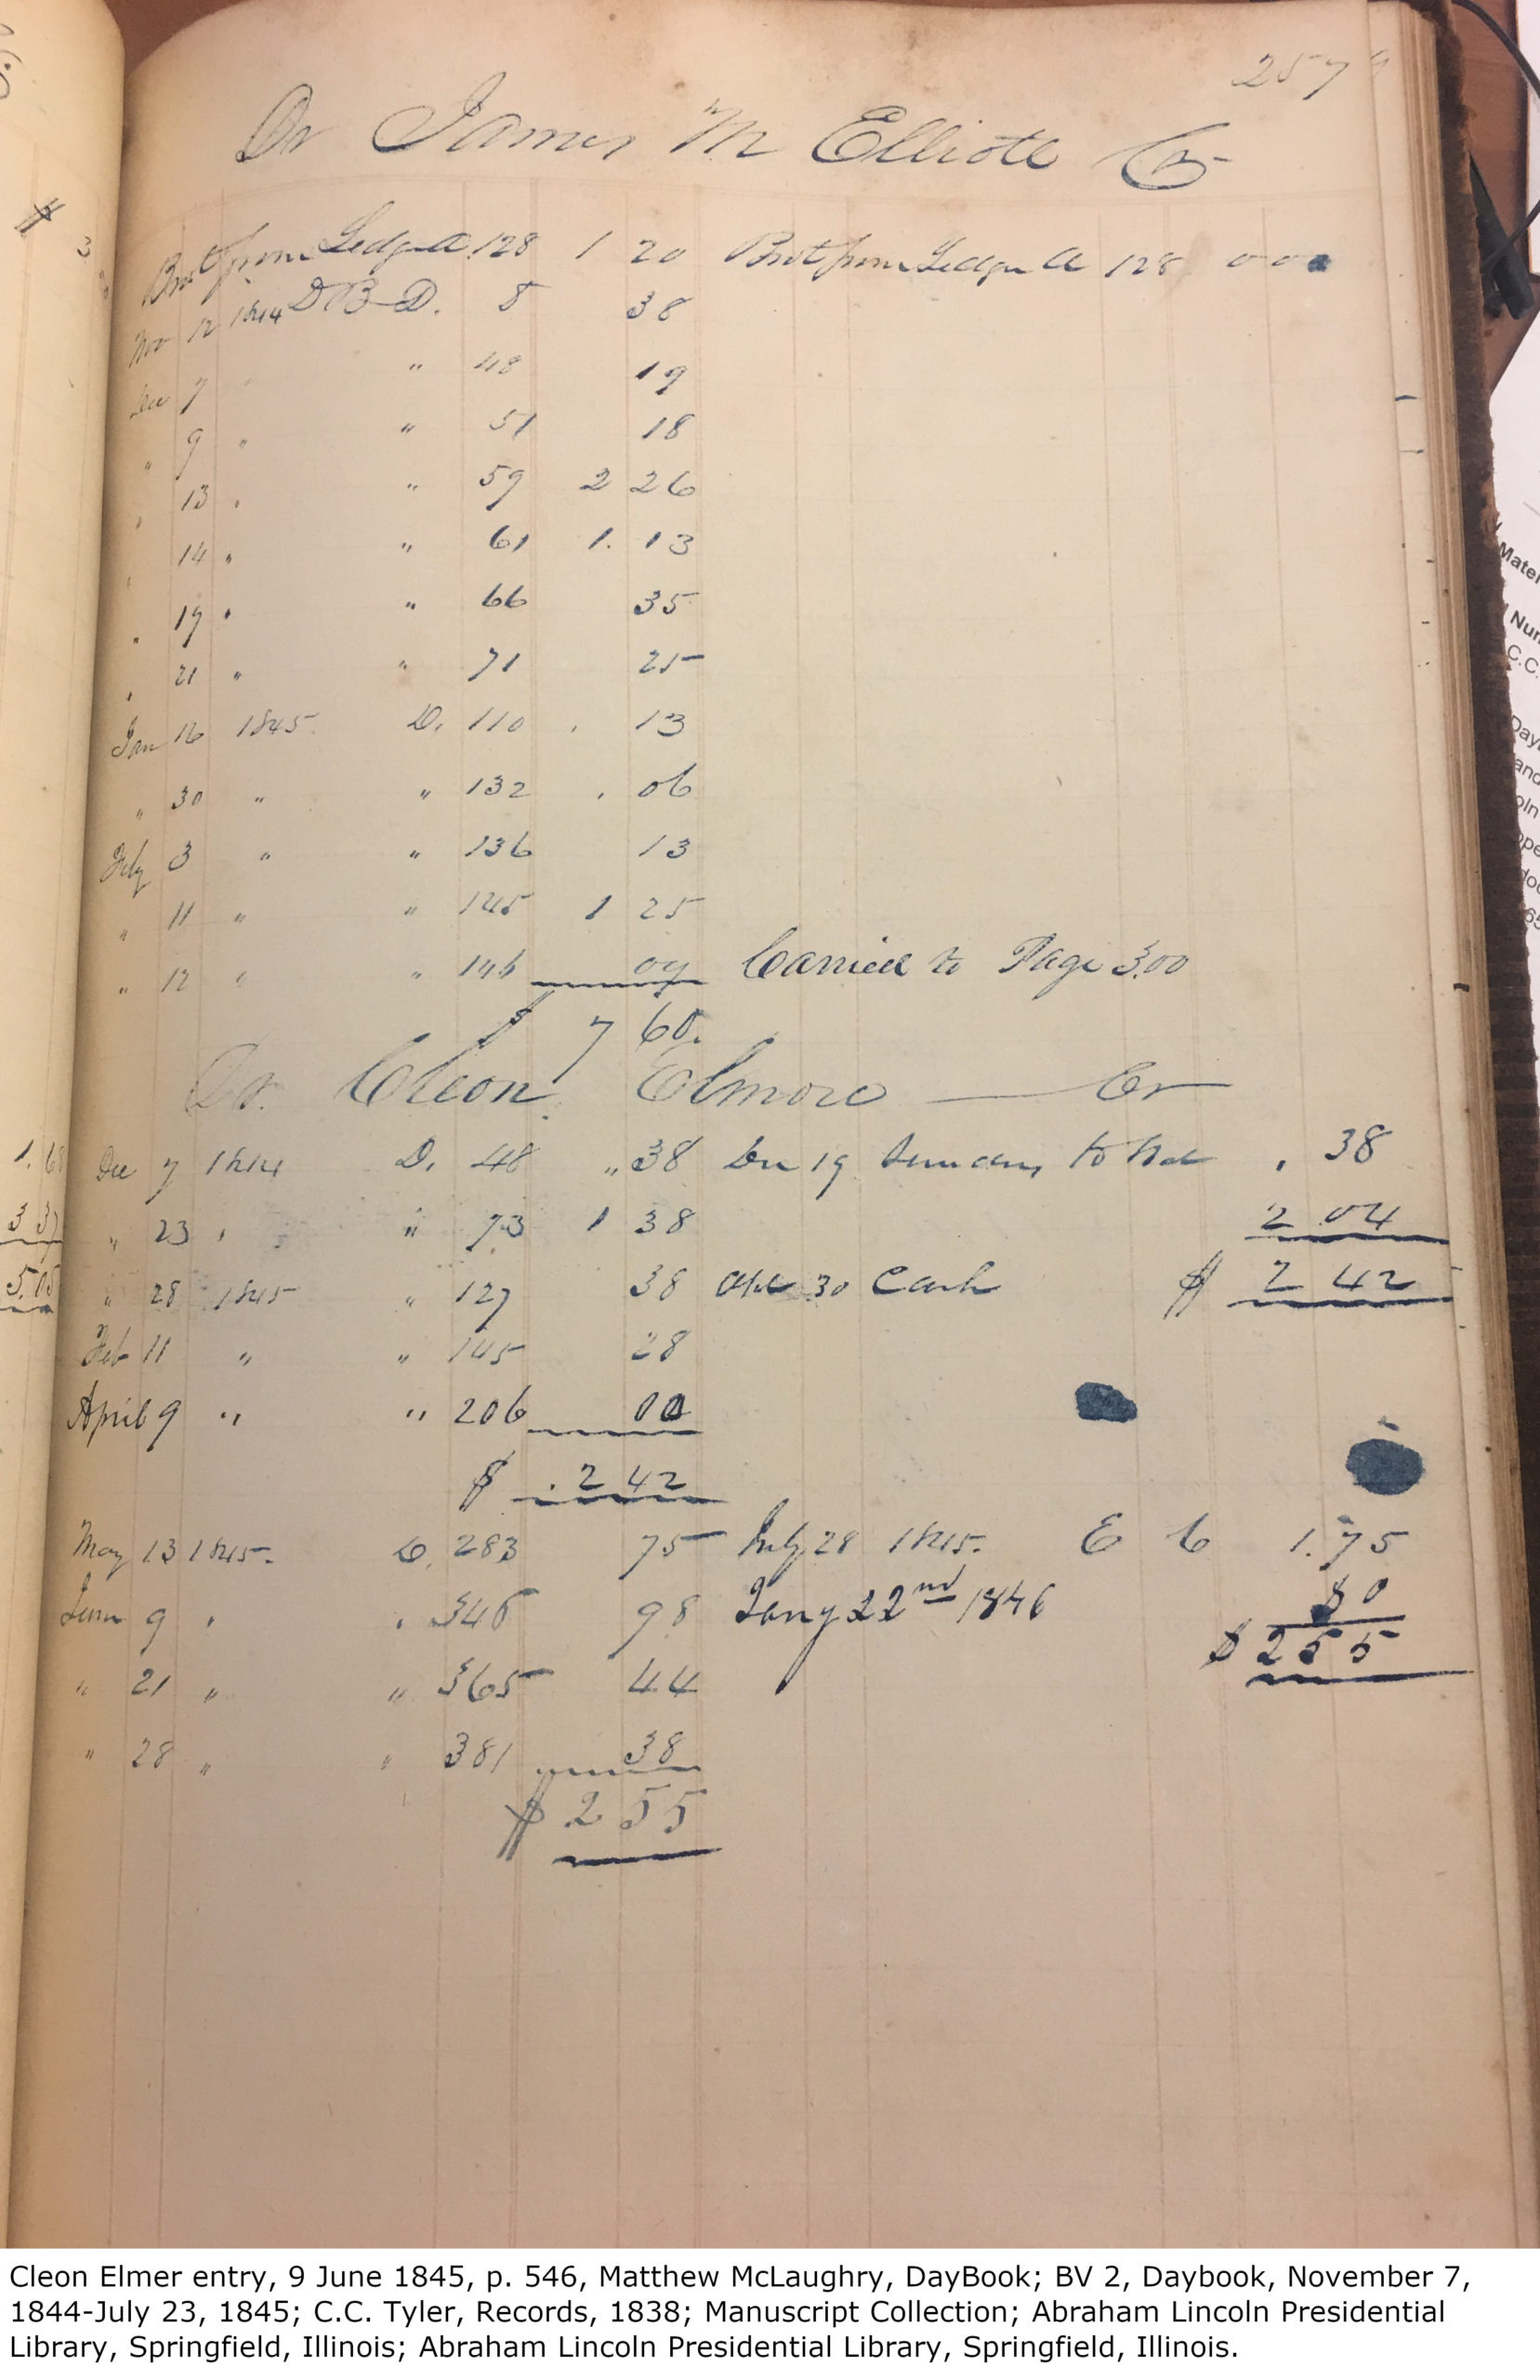 257
Dr James M Elliott Cr
Brot from Ledger A 128 1 20 Brot from Ledger A 128 0 0 0
Nov 12 1844 D B D. 8 38
Dec 7 " 48 19
" 9 " " 51 18
" 13 " " 59 2 26
" 14 " " 61 1. 13
" 19 " " 66 35
" 21 " " 71 25
Jan 16 1845. D. 110 . 13
" 30 " " 132 . 06
Feby 3 " " 136 13
" 11 " " 145 1 25
" 12 " " 146 09 Carried to Page 300
$ 7 60.
Dr. Cleon Elmore Cr
Dec 7 1844 D. 48 " 38 Dec 19 . 38
" 23 " " 73 1 38 2 04
" 28 1845 " 127 38 30 Cash $ 2 42
Feb 11 " " 145 28
April 9 " " 206 00
$ . 2 42
May 13 1845. D. 283 75 July 28 1845. E C 1.75
June 9 " " 346 98 Jany 22nd 1846 80
$ 2 55
" 21 " " 365 44
" 28 " " 381 38
$ 2 55
1. 68
3 37
5.05
Mater
Num
C.C.
Cleon Elmer entry, 9 June 1845, p. 546, Matthew McLaughry, DayBook; BV 2, Daybook, November 7,
1844-July 23, 1845; C.C. Tyler, Records, 1838; Manuscript Collection; Abraham Lincoln Presidential
Library, Springfield, Illinois; Abraham Lincoln Presidential Library, Springfield, Illinois.